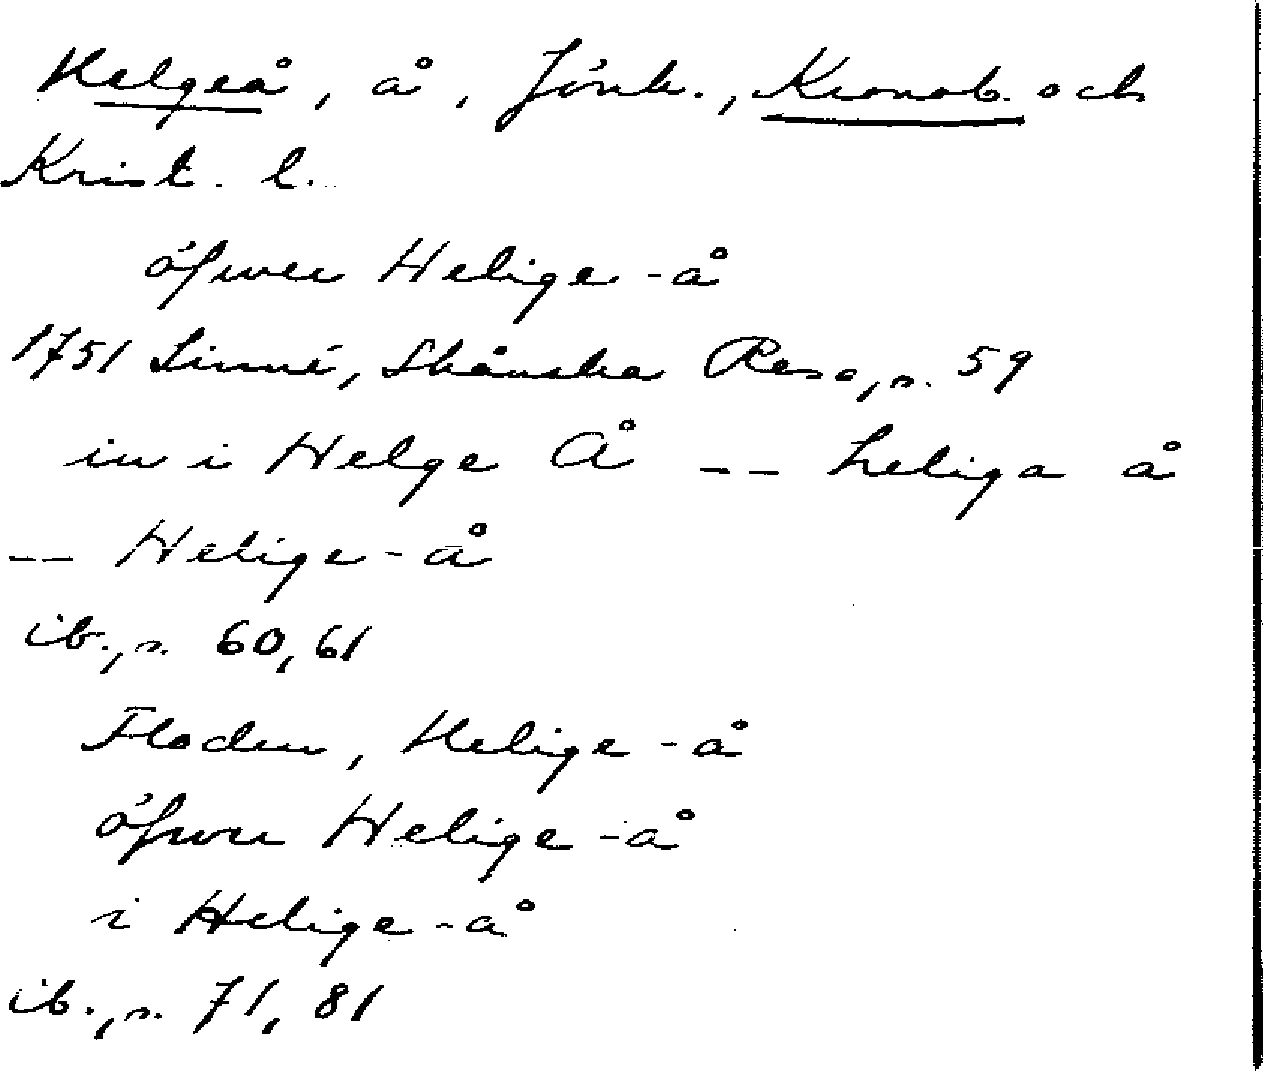 Helgeå, å, Jönk., Kronob. och
Krist. l.
öfwer Helige-å
1751 Linné, Skånska Resa, s. 59
in i Helge Å -- heliga å
-- Helige-å
ib., s. 60, 61
Floden, Helige-å
öfwer Helige-å
i Helige-å
ib., s. 71, 81